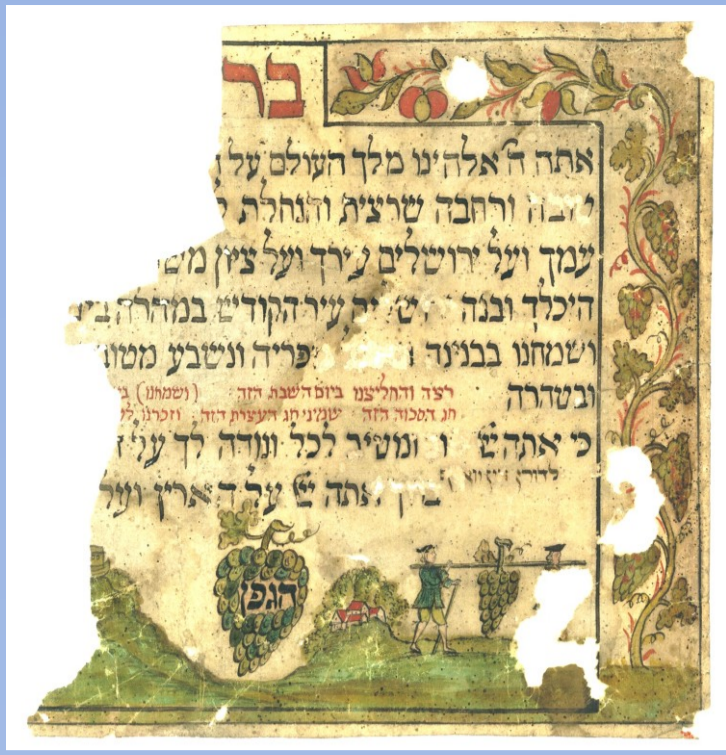 בר
אתה ה' אלהינו מלך העולם על
ורחבה שרצית והנחלת
עמך ועל ירושלים עירך ועל ציון
היכלך ובנה עיר הקודש במהרה
ושמחנו בבנינה ונשבע
ובטהרה
רצה והחליצנו ביום השבת הזה (ושמחנו)
חג הסכות הזה שמיני חג העצרת הזה וזכרנו
כי אתה ומטיב לכל ונודה לך על
אתה על הארץ ועל
הגפן